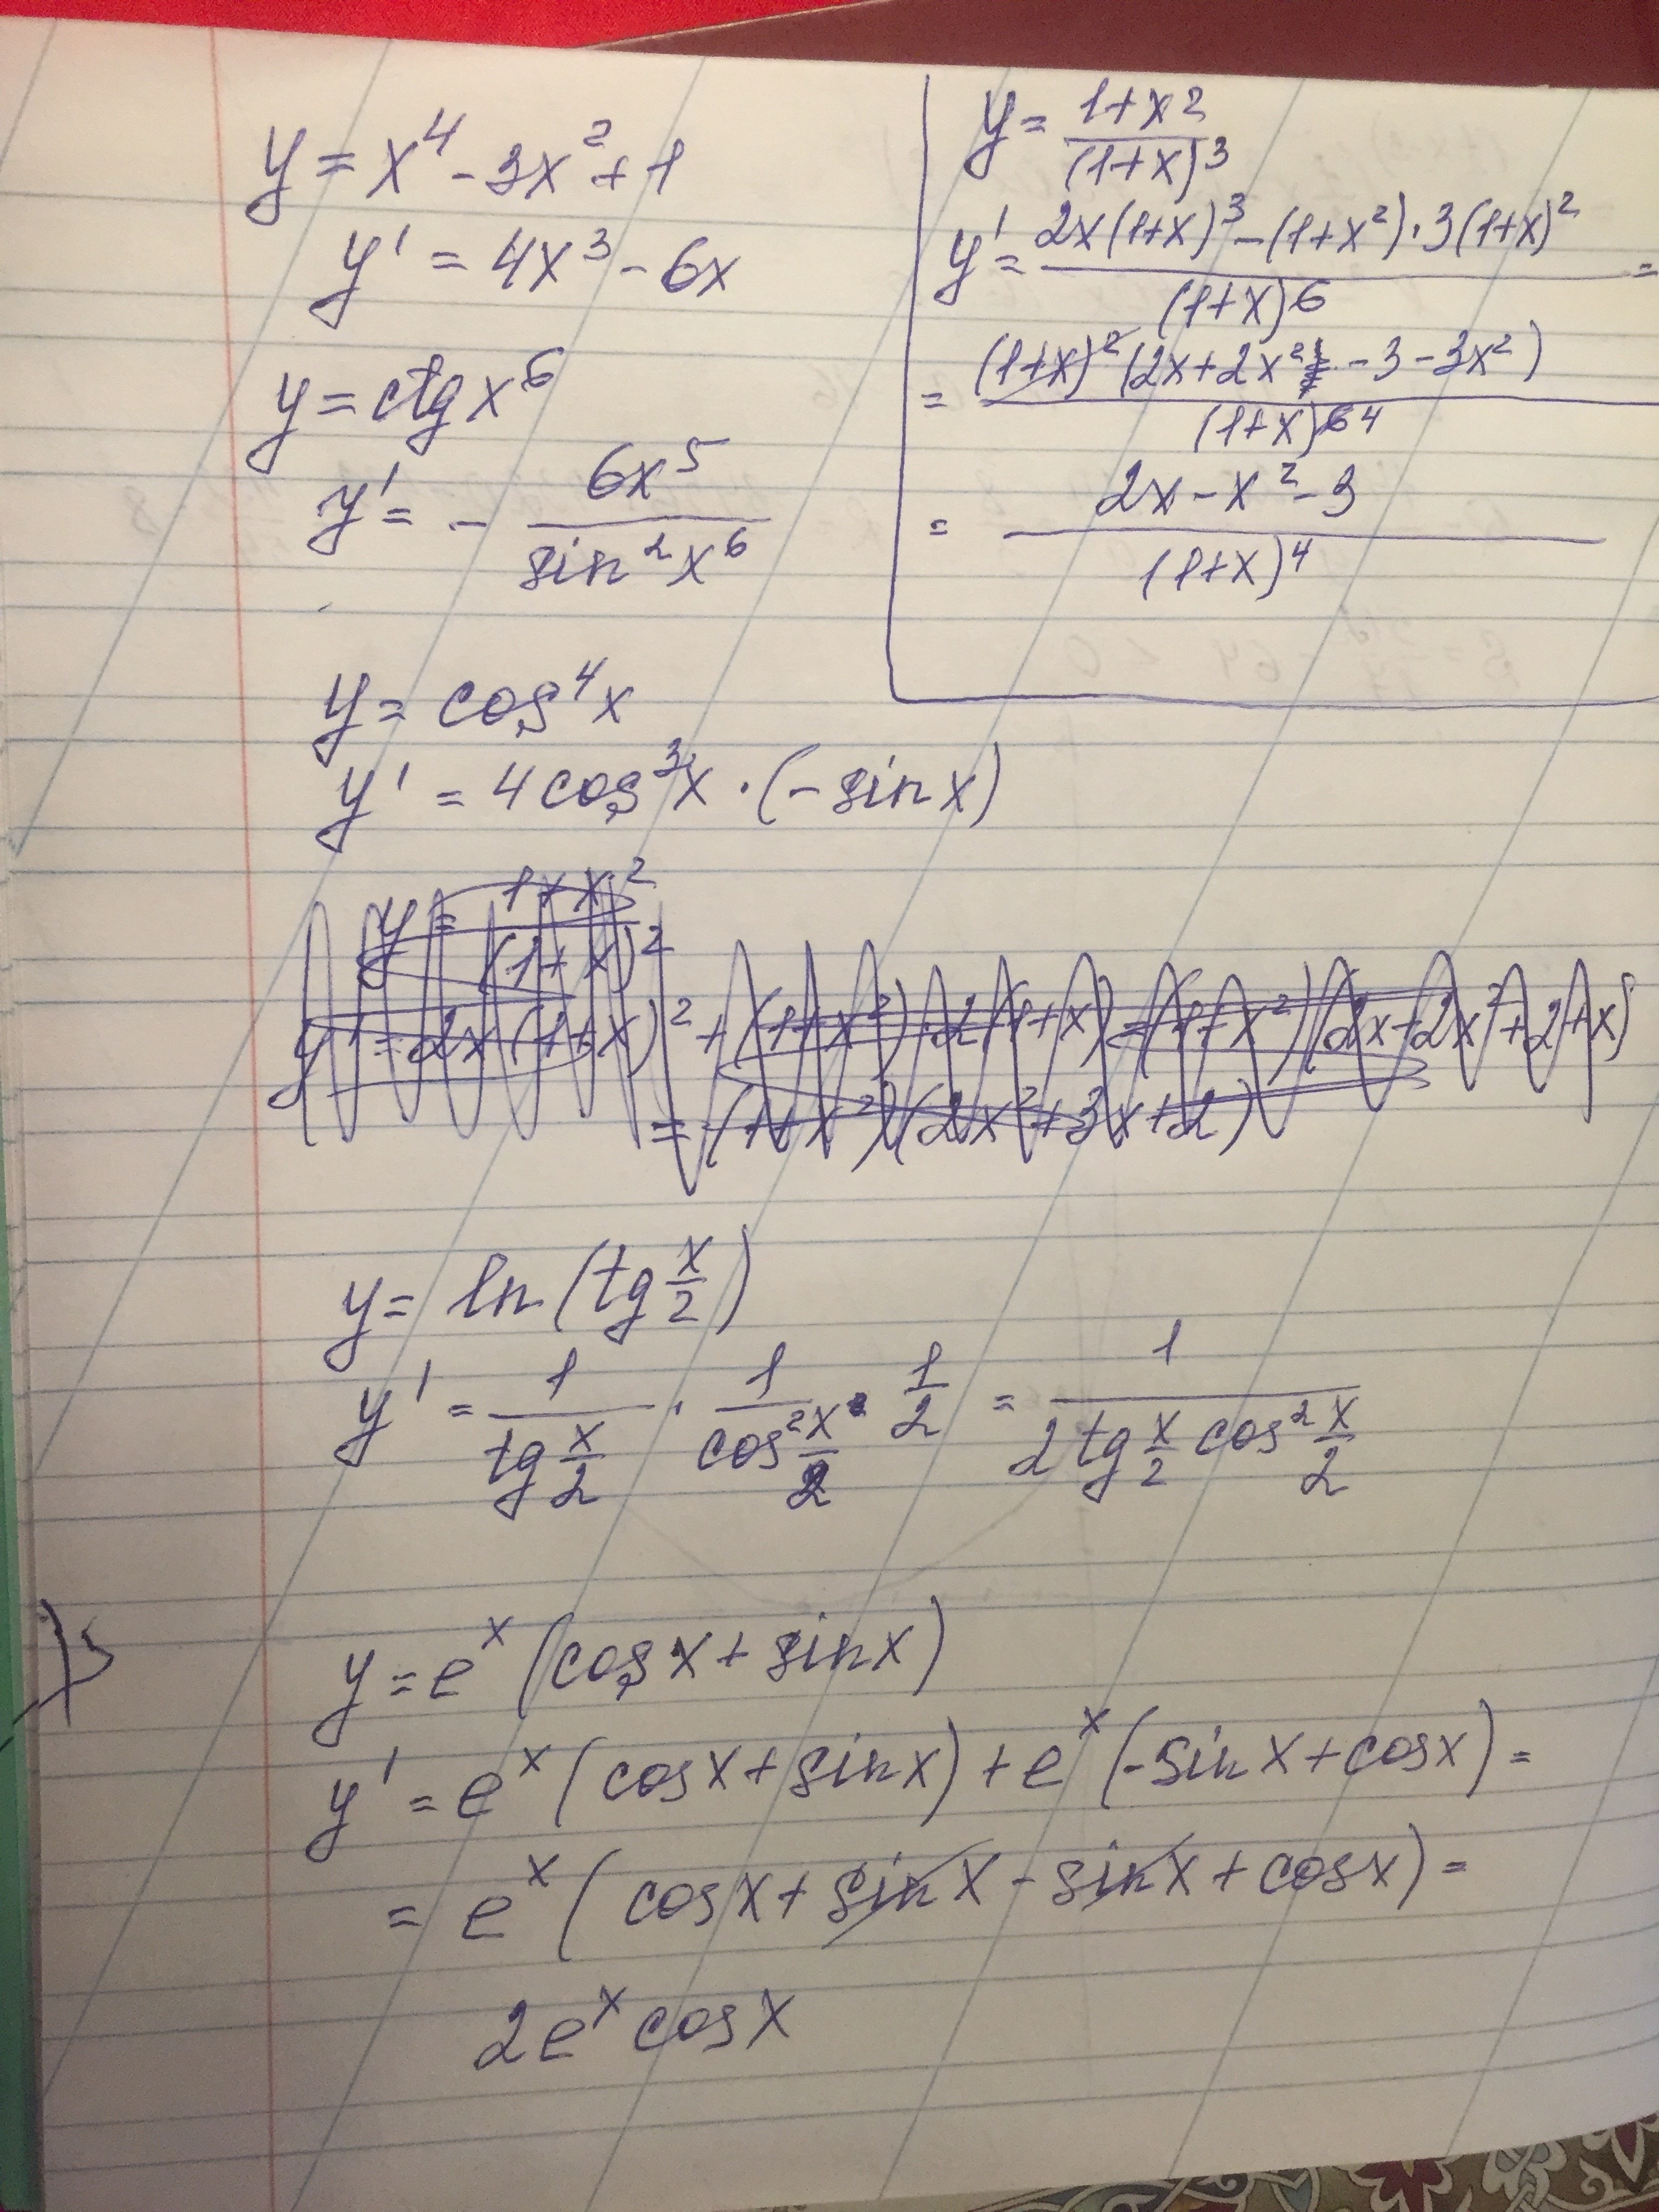 y = x⁴ - 3x² + 1
y' = 4x³ - 6x
y = ctg x⁶
y' = - 6x⁵ / sin²x⁶
y = (1+x²) / (1+x)³
y' = (2x(1+x)³ - (1+x²)·3(1+x)²) / (1+x)⁶ =
= (1+x)²(2x+2x² - 3 - 3x²) / (1+x)⁶ ⁴
= (2x - x² - 3) / (1+x)⁴
y = cos⁴x
y' = 4cos³x · (-sin x)
y = (1+x²) / (1+x)²
y' = 2x(1+x)² + (1+x²)·2(1+x) = (1+x²)(2x+2x²+2+x)
= (1+x²)(2x²+3x+2)
y = ln(tg x/2)
y' = 1/(tg x/2) · 1/(cos² x/2) · 1/2 = 1/(2 tg x/2 cos² x/2)
y = eˣ(cosx + sinx)
y' = eˣ(cosx + sinx) + eˣ(-sinx + cosx) =
= eˣ(cosx + sinx - sinx + cosx) =
2eˣ cosx